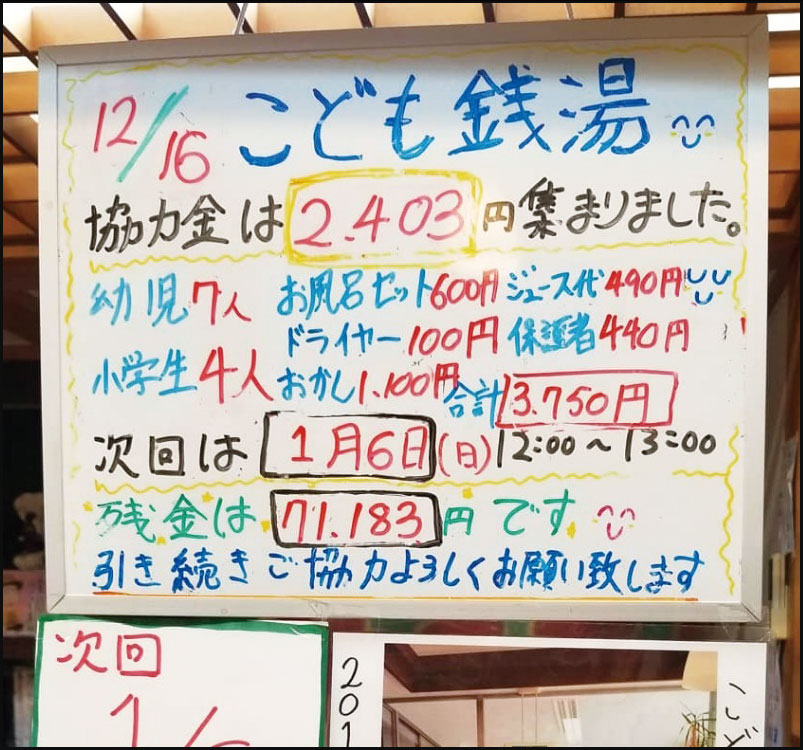 12/16 こども銭湯
協力金は 2.403 円集まりました。
幼児7人 お風呂セット600円 ジュース代490円
ドライヤー100円 保護者440円
小学生4人 おかし1.100円 合計 3.750円
次回は 1月6日(日) 12:00～13:00
残金は 71.183 円です
引き続きご協力よろしくお願い致します
次回
1/
201
こど